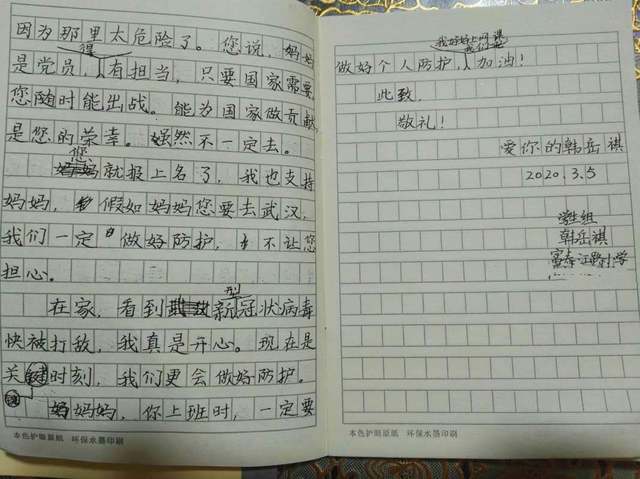 因为那里太危险了。您说,妈妈
是党员,得有担当,只要国家需要,
您随时能出战。能为国家做贡献,
是您的荣幸。虽然不一定去。
您就报上名了,我也支持
妈妈,假如妈妈您要去武汉,
我们一定做好防护,不让您
担心。
在家,看到新型冠状病毒
快被打败,我真是开心。现在是
关键时刻,我们更会做好防护。
妈妈,你上班时,一定要
本色护眼原纸 环保水墨印刷
我好好上网课
做好个人防护,我们一起加油!
此致
敬礼!
爱你的韩岳祺
2020.3.5
学生组
韩岳祺
本色护眼原纸 环保水墨印刷